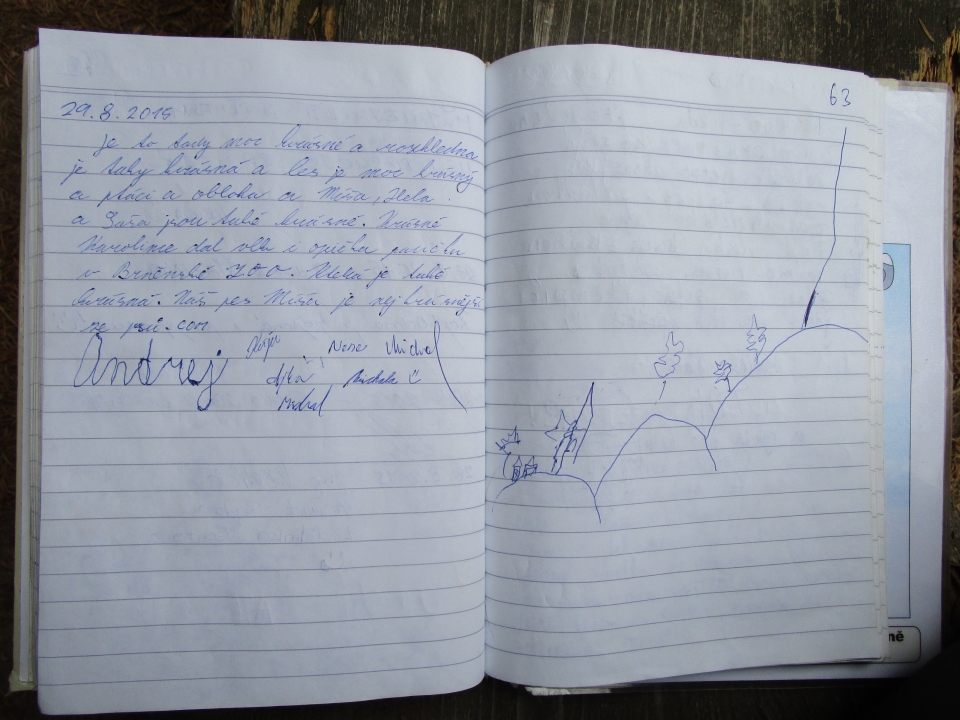 29.8.2015
Je to tady moc krásné a rozhledna
je taky krásná a les je moc krásný
a ptáci a obloha a Míša, Hela
a Saša jsou také krásné. Krásné
Karolince dal vlka i opička paničku
v Brněnské ZOO. Hela je také
krásná. Náš pes Míša je nejkrásnější
ze psů.com
Andrej Michal
Michala
Michal
63
ně